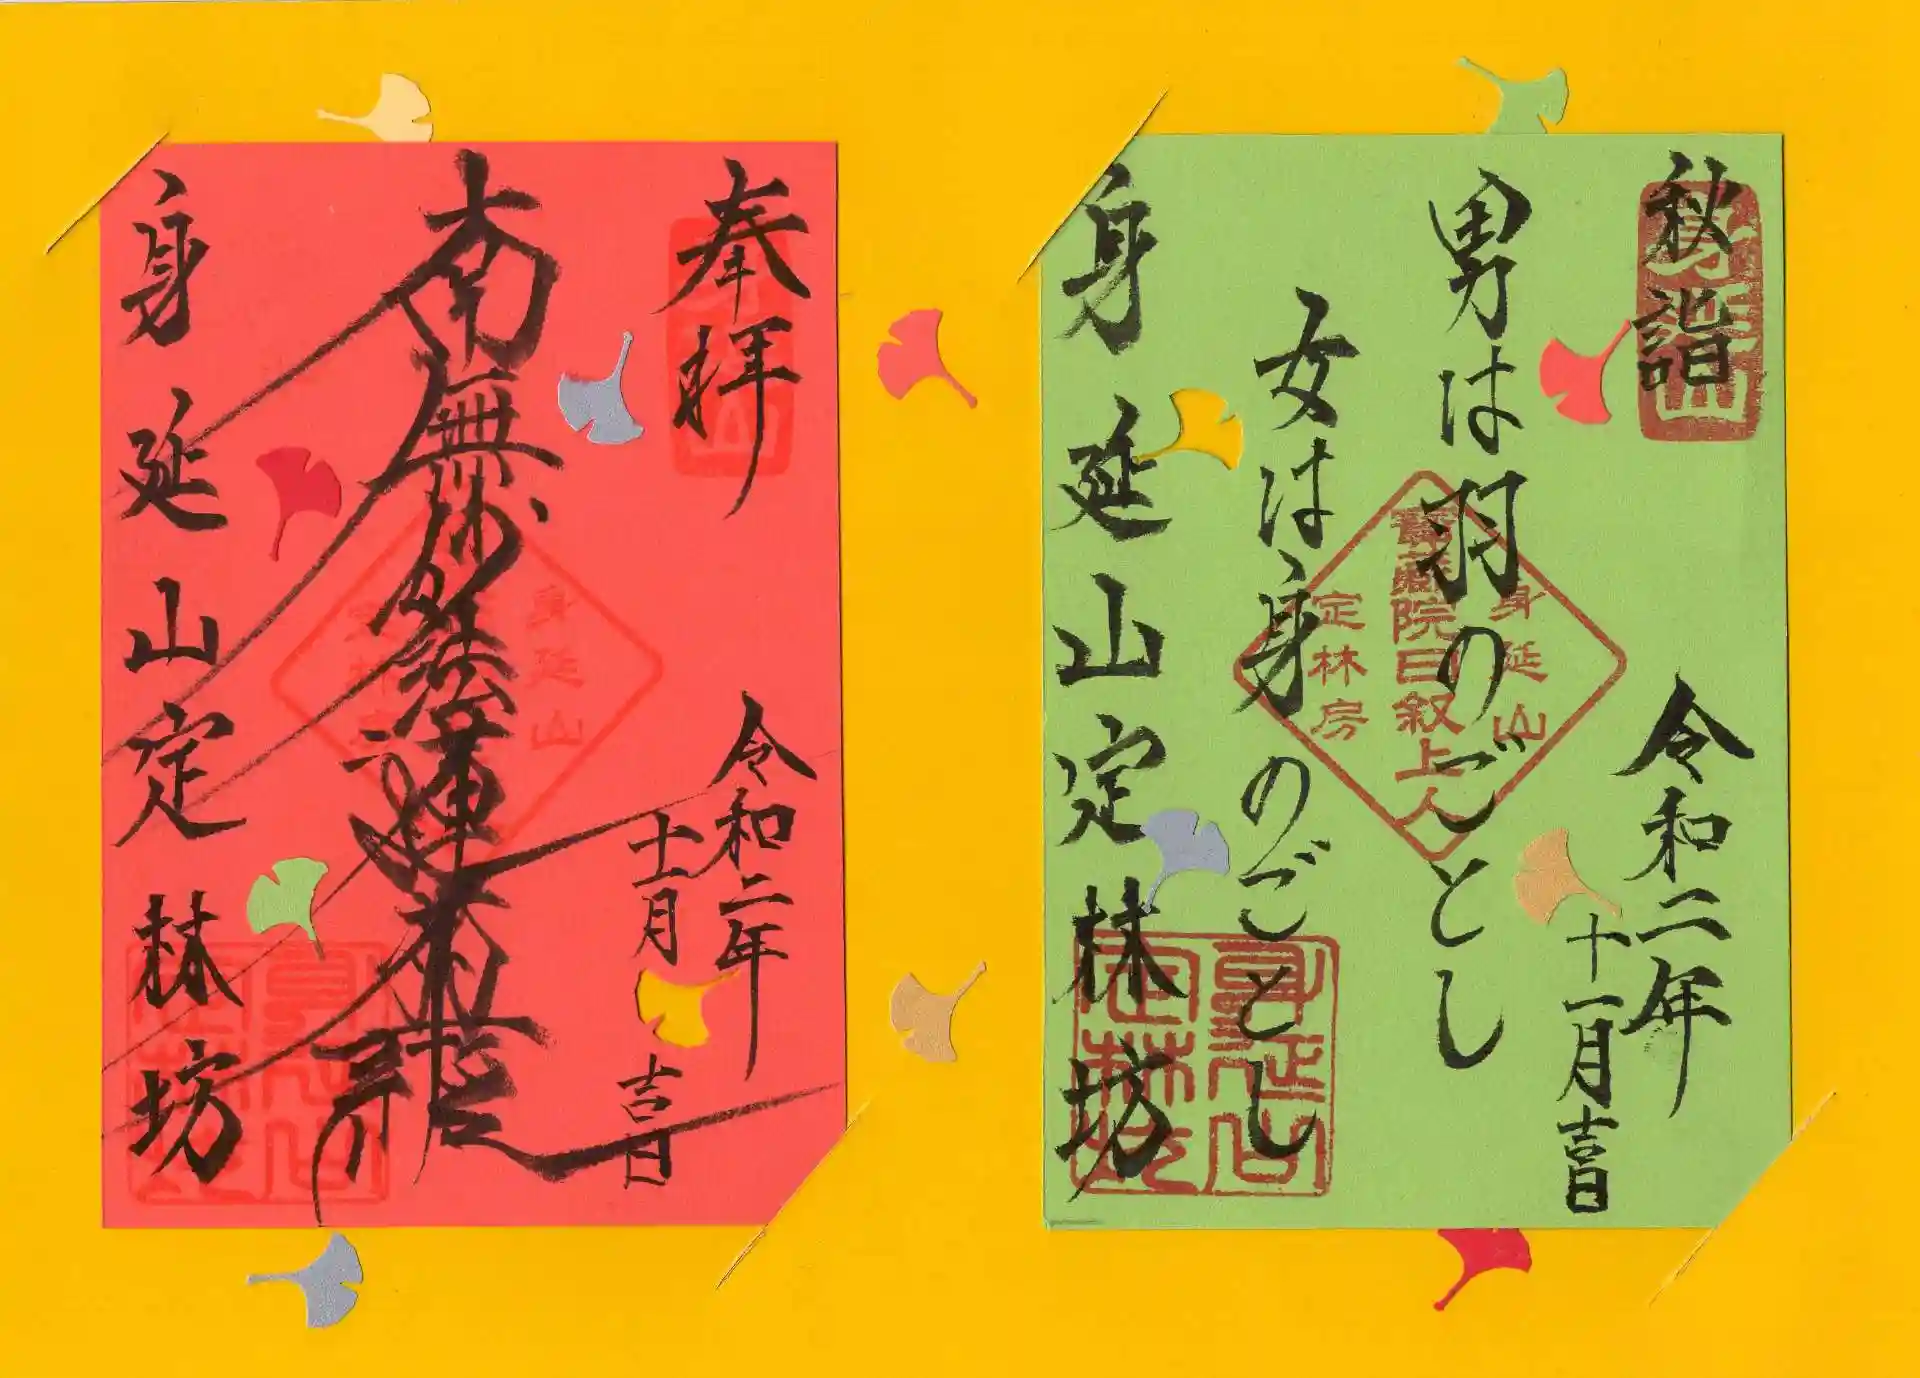 奉拝
令和二年
十一月
吉日
南無妙法蓮華経
身延山定林坊
身延山
秋詣
令和二年
十一月吉日
男は羽のごとし
女は身のごとし
身延山定林坊
身延山
身延山
寿蔵院日叙上人
定林房
身延山
定林坊